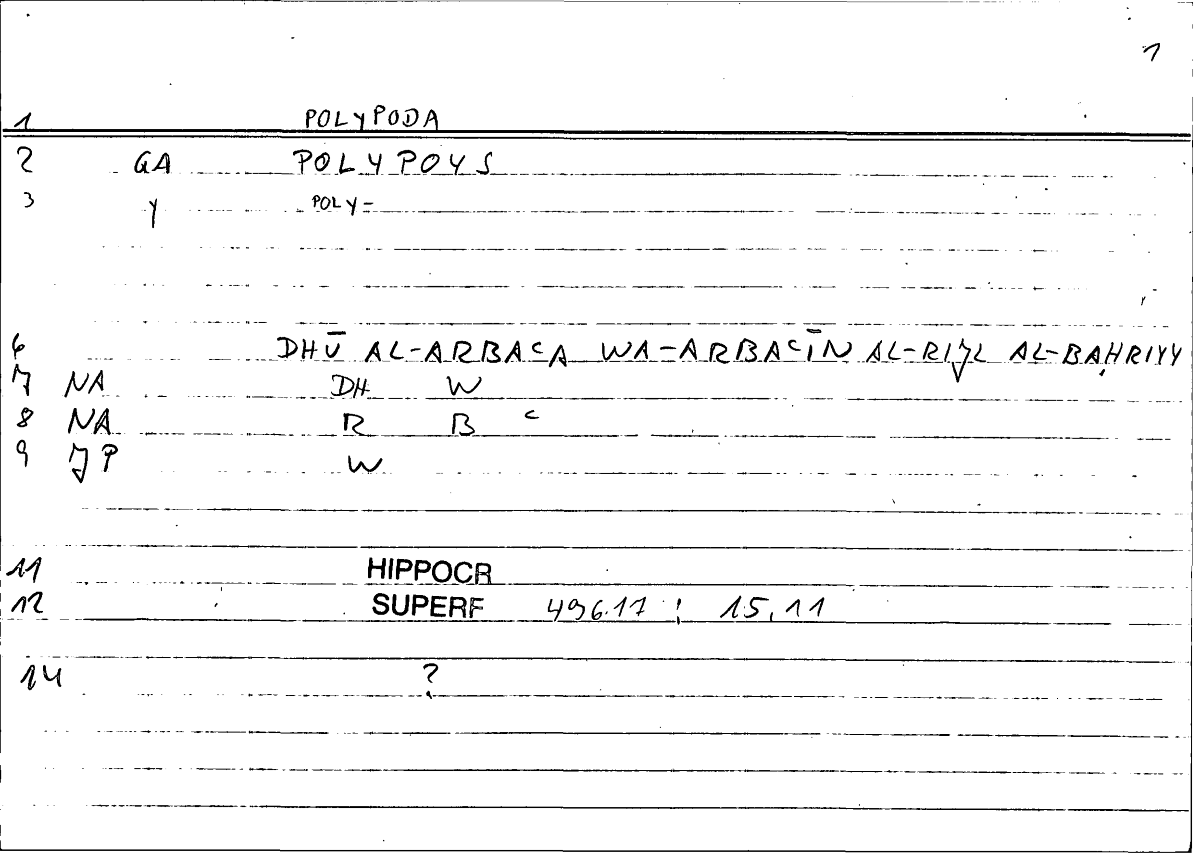 1
1 POLYPODA
2 GA POLYPOYS
3 Y POLY=
6 DHŪ AL-ARBAᶜA WA-ARBAᶜĪN AL-RIJ̌L AL-BAḤRIYY
7 NA DH W
8 NA R B ᶜ
9 JP W
11 HIPPOCR
12 SUPERF 496.17 ; 15,11
14 ?